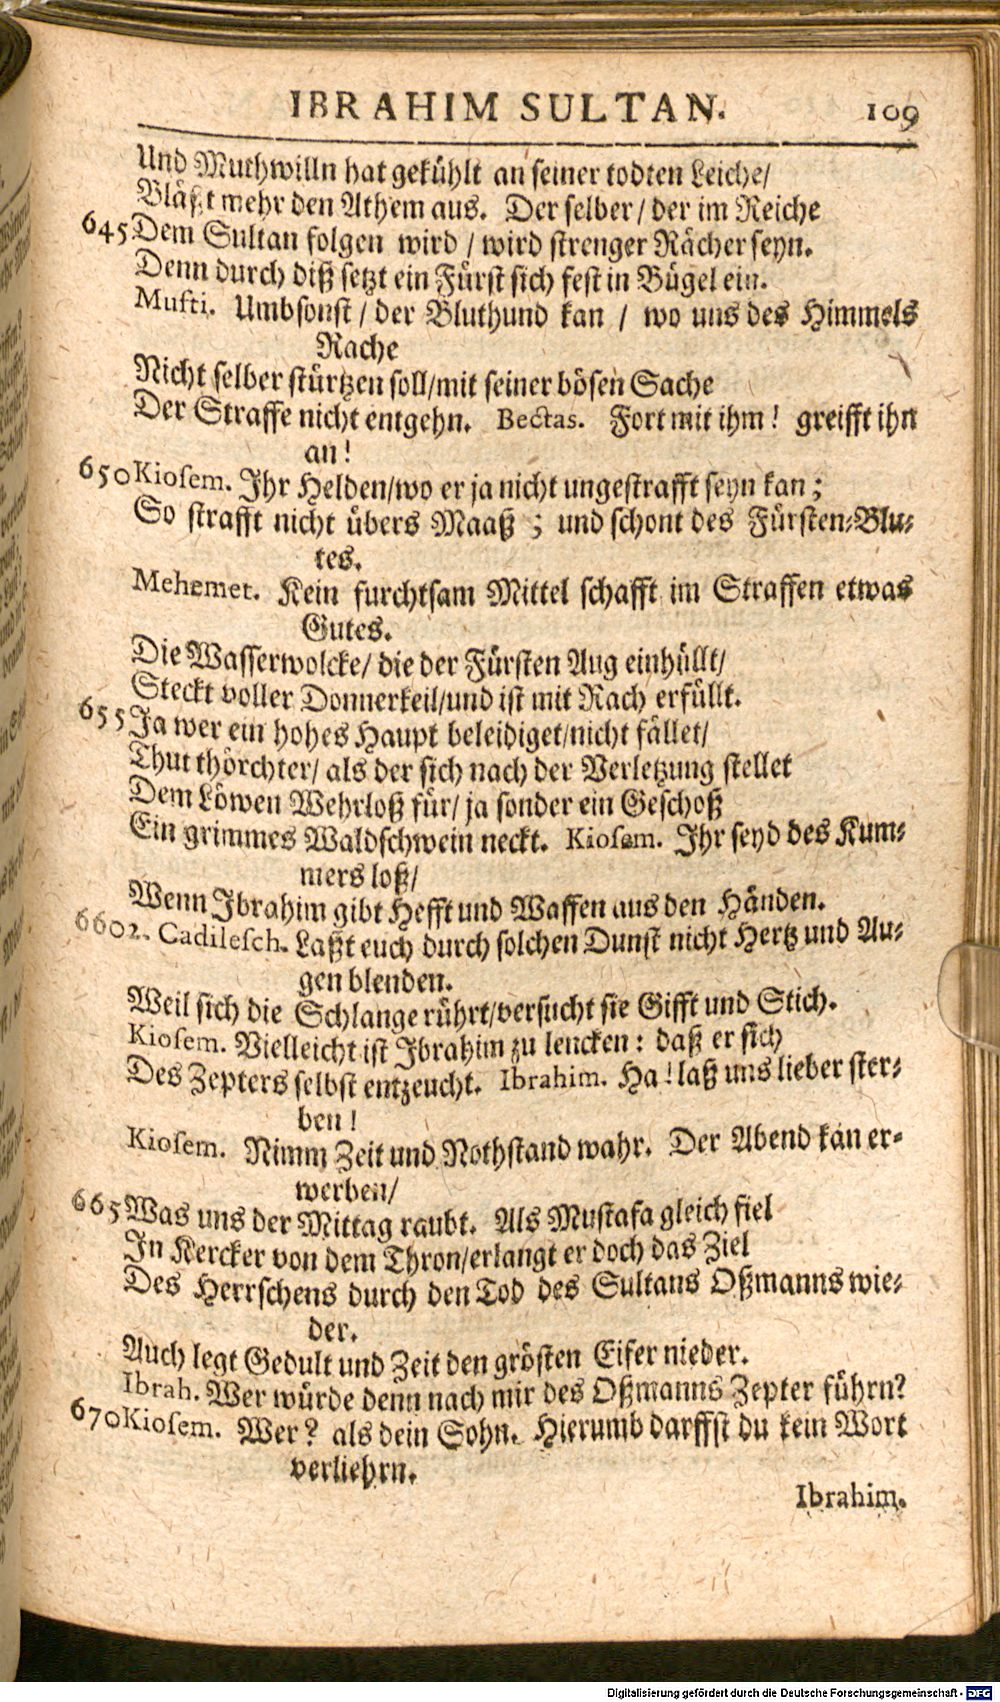 IBRAHIM SULTAN. 109
Und Muthwilln hat gekühlt an seiner todten Leiche/
Bläßt mehr den Athem aus. Der selber / der im Reiche
645 Dem Sultan folgen wird / wird strenger Rächer seyn.
Denn durch diß setzt ein Fürst sich fest in Bügel ein.
Mufti. Umbsonst / der Bluthund kan / wo uns des Himmels
Rache
Nicht selber stürtzen soll/mit seiner bösen Sache
Der Straffe nicht entgehn. Bectas. Fort mit ihm! greifft ihn
an!
650 Kiosem. Ihr Helden/wo er ja nicht ungestrafft seyn kan;
So strafft nicht übers Maaß; und schont des Fürsten-Blu-
tes.
Mehemet. Kein furchtsam Mittel schafft im Straffen etwas
Gutes.
Die Wasserwolcke/ die der Fürsten Aug einhüllt/
Steckt voller Donnerkeil/und ist mit Rach erfüllt.
655 Ja wer ein hohes Haupt beleidiget/nicht fället/
Thut thörchter/ als der sich nach der Verletzung stellet
Dem Löwen Wehrloß für/ ja sonder ein Geschoß
Ein grimmes Waldschwein neckt. Kiosem. Ihr seyd des Kum-
mers loß/
Wenn Ibrahim gibt Hefft und Waffen aus den Händen.
660 2. Cadilesch. Laßt euch durch solchen Dunst nicht Hertz und Au-
gen blenden.
Weil sich die Schlange rührt/versucht sie Gifft und Stich.
Kiosem. Vielleicht ist Ibrahim zu lencken: daß er sich
Des Zepters selbst entzeucht. Ibrahim. Ha! laß uns lieber ster-
ben!
Kiosem. Nimm Zeit und Nothstand wahr. Der Abend kan er-
werben/
665 Was uns der Mittag raubt. Als Mustafa gleich fiel
In Kercker von dem Thron/erlangt er doch das Ziel
Des Herrschens durch den Tod des Sultans Oßmanns wie-
der.
Auch legt Gedult und Zeit den grösten Eifer nieder.
Ibrah. Wer würde denn nach mir des Oßmanns Zepter führn?
670 Kiosem. Wer? als dein Sohn. Hierumb darffst du kein Wort
verliehrn.
Ibrahim.
Digitalisierung gefördert durch die Deutsche Forschungsgemeinschaft - DFG